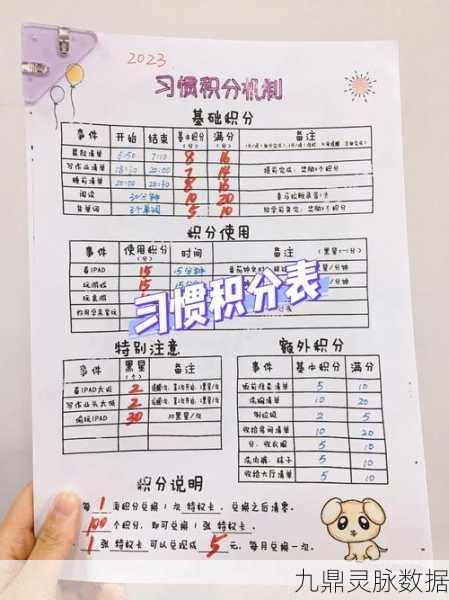 2023
习惯积分机制
基础积分
事件 开始 结束 基本积分(分) 满分(分) 备注
晨起清单 6:50 7:10 8 16
写作业清单 18:30 20:00 7 14 提前完成:奖励1个积分
睡前清单 20:00 20:30 8 16
阅读 30分钟 10 20
背单词 3个单词 5 10
积分使用
事件 使用积分(分) 时间 备注(黑星=-1分)
看IPAD 15 15分钟
玩游戏 15
习惯积分表
特别注意
事件 黑星(个) 备注
看IPAD大叫 2
写作业头太低 2
偷玩IPAD 30 30黑星/次
额外积分
事件 基本积分 满分
饭前准备清单 5 10
洗碗清单 10 20
倒垃圾 2 5
收拾房间清单 10 20
5 10
洗内裤、袜子 5 10
收拾大厅清单 5 10
积分说明
每 1 周积分兑换1次特权卡,兑换之后清零。
100 个积分,即可兑换1张特权卡。
1 张特权卡可以兑现成 5 元,每月兑换一次。
九鼎灵脉数据